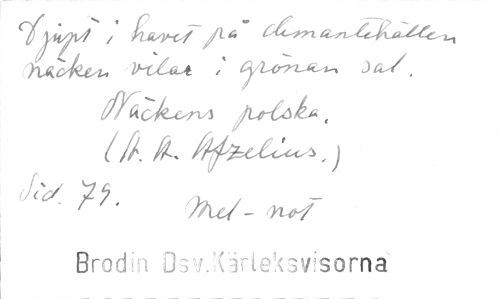 Djupt i havet på demantehällen
näcken vilar i grönan sal.
Näckens polska.
(A. A. Afzelius.)
Sid. 79.
Mel-not
Brodin Dsv.Kärleksvisorna